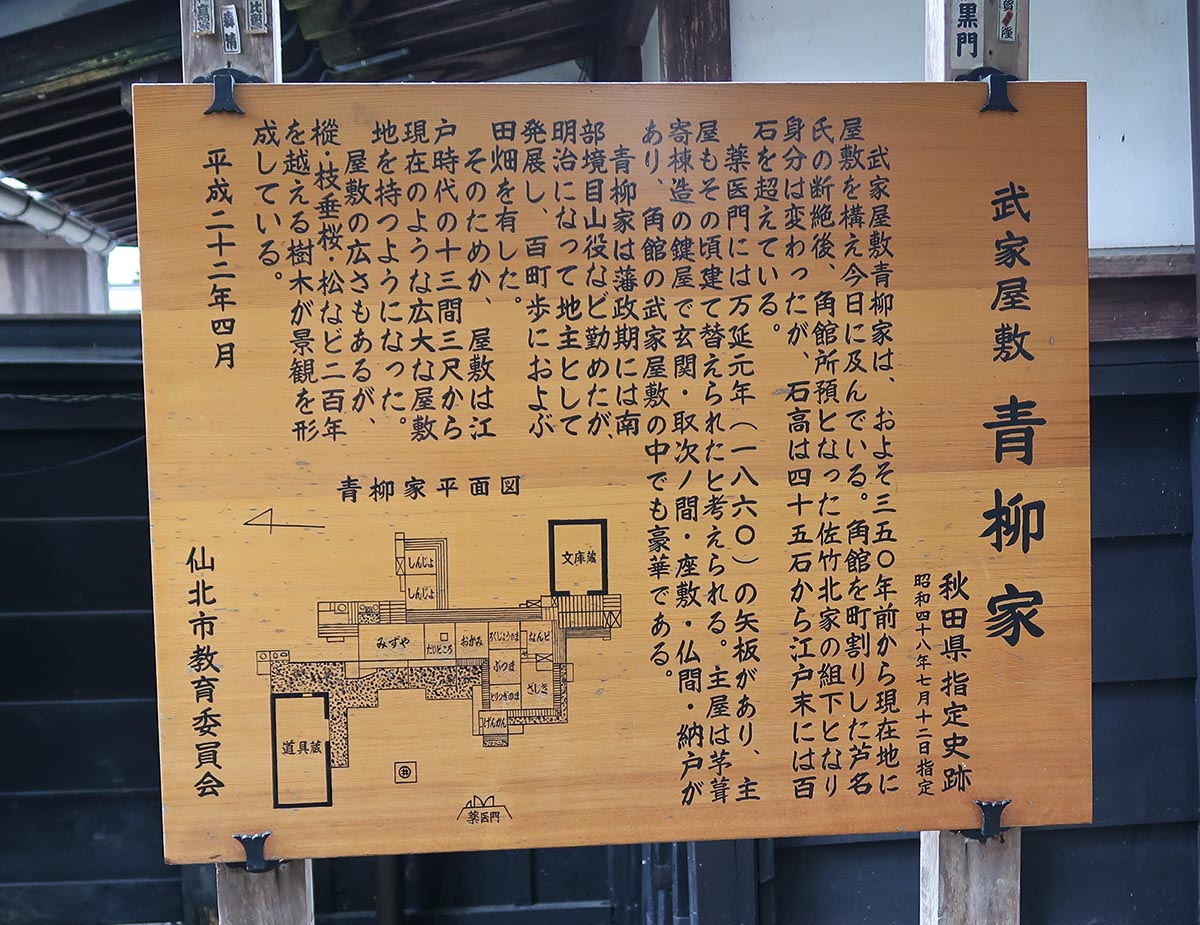 武家屋敷 青柳家
秋田県指定史跡
昭和四十八年七月十二日指定
武家屋敷青柳家は、およそ三五〇年前から現在地に
屋敷を構え今日に及んでいる。角館を町割りした芦名
氏の断絶後、角館所預となった佐竹北家の組下となり
身分は変わったが、石高は四十五石から江戸末には百
石を超えている。
薬医門には万延元年(一八六〇)の矢板があり、主
屋もその頃建て替えられたと考えられる。主屋は茅葺
寄棟造の鍵屋で玄関・取次ノ間・座敷・仏間・納戸が
あり、角館の武家屋敷の中でも豪華である。
青柳家は藩政期には南
部境目山役など勤めたが、
明治になって地主として
発展し、百町歩におよぶ
田畑を有した。
そのためか、屋敷は江
戸時代の十三間三尺から
現在のような広大な屋敷
地を持つようになった。
屋敷の広さもあるが、
樅・枝垂桜・松など二百年
を越える樹木が景観を形
成している。
平成二十二年四月
仙北市教育委員会
青柳家平面図
文庫蔵
しんじょ
しんじょ
みずや
だいどころ
おかみ
ろくじょうのま
なんど
ぶつま
とりつぎのま
ざしき
げんかん
道具蔵
井
薬医門
黒門